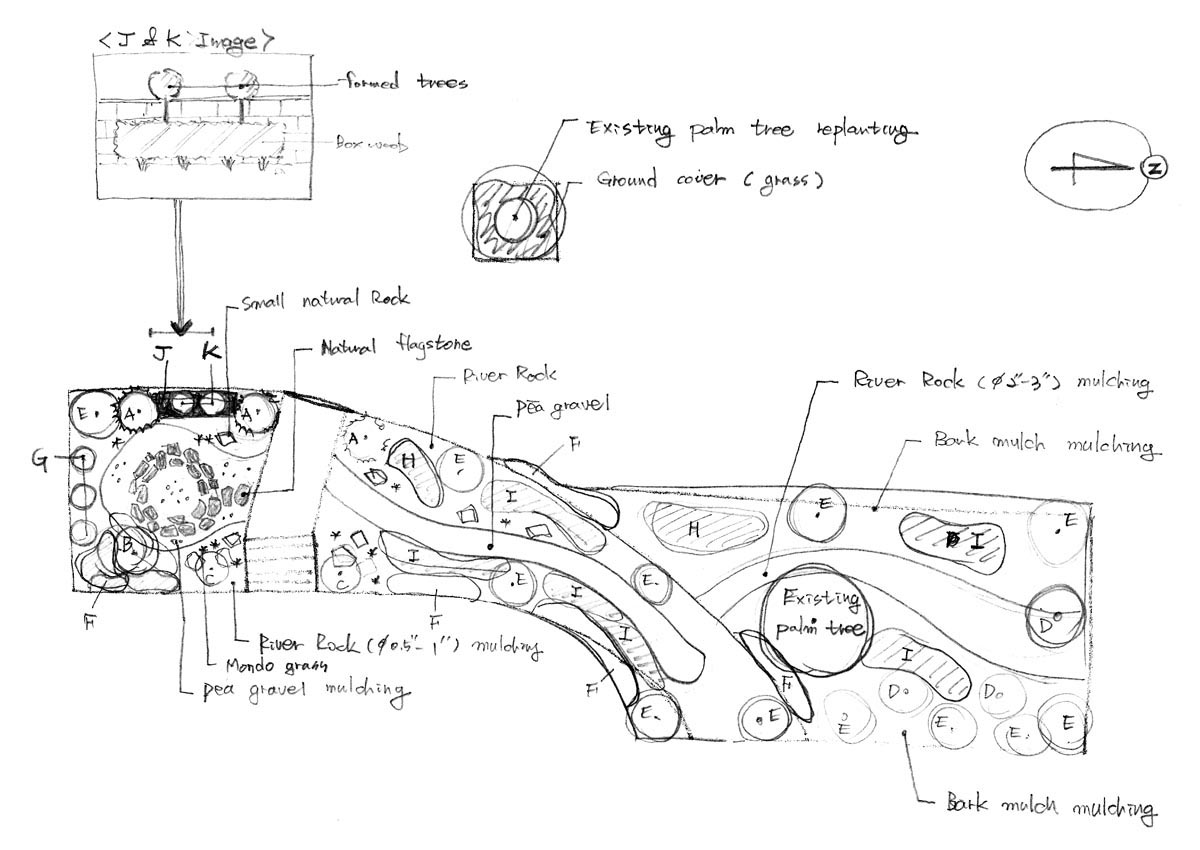 <J & K Image>
formed trees
Boxwood
Existing palm tree replanting
Ground cover (grass)
Z
Small natural Rock
J K
Natural flagstone
River Rock
Pea gravel
River Rock (φ2"-3") mulching
Bark mulch mulching
E A A
G
A H E I F
H E I E
B C
C I E I E
Existing
palm tree
D
I
F
F
I
F
F
E E E
D D
E E E
River Rock (φ0.5"-1") mulching
Mondo grass
pea gravel mulching
Bark mulch mulching